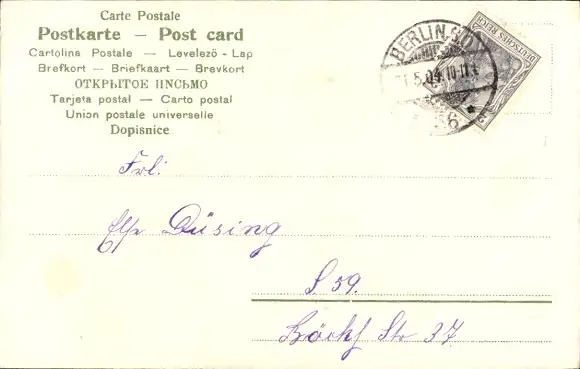 Carte Postale
Postkarte — Post card
Cartolina Postale — Levelező - Lap
Brefkort — Briefkaart — Brevkort
ОТКРЫТОЕ ПИСЬМО
Tarjeta postal — Carto postal
Union postale universelle
Dopisnice
BERLIN
5.04.10-11
36
DEUTSCHES REICH
2
Frl:
Else Düsing
S 59.
Str 37.